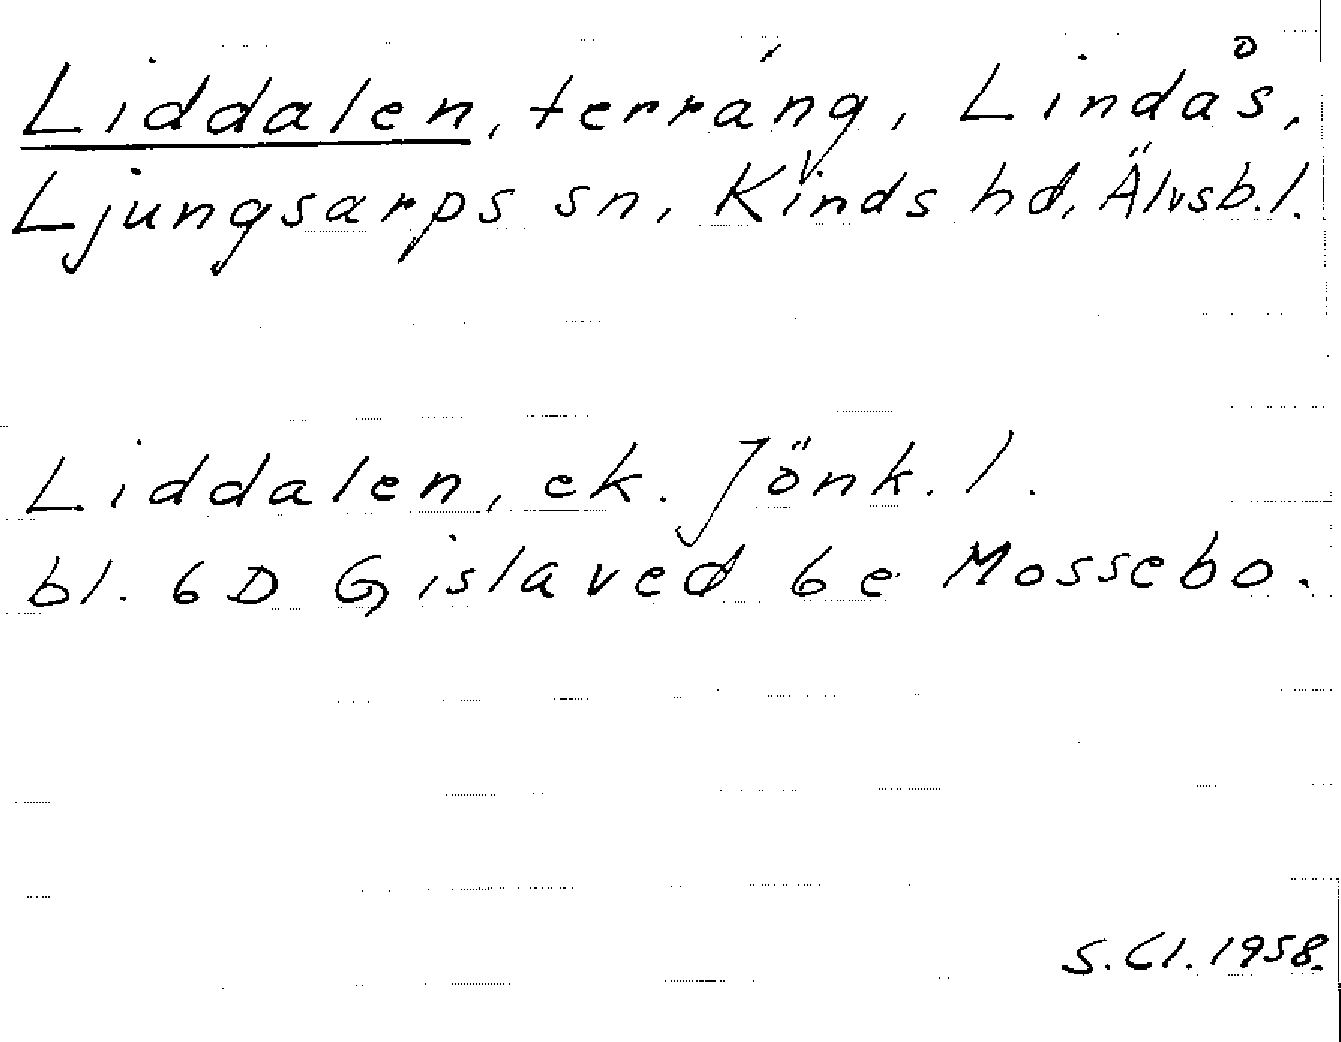 Liddalen, terräng, Lindås,
Ljungsarps sn, Kinds hd, Älvsb. l.
Liddalen, ek. Jönk. l.
bl. 6D Gislaved 6e Mossebo.
S. Cl. 1958.